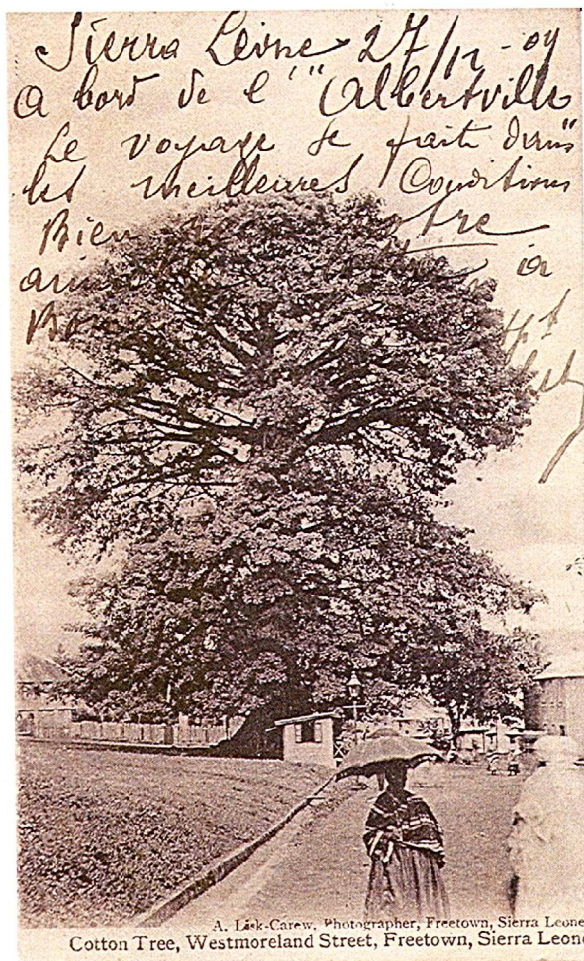 Sierra Léone 27/12-09
à bord de l'"Albertville
Le voyage se fait dans
les meilleures Conditions
Bien votre
à
A. Lisk-Carew, Photographer, Freetown, Sierra Leone
Cotton Tree, Westmoreland Street, Freetown, Sierra Leone